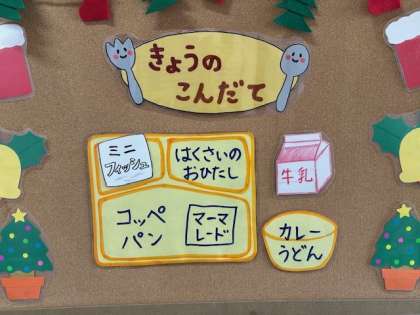 きょうの
こんだて
ミニ
フィッシュ
はくさいの
おひたし
牛乳
コッペ
パン
マーマ
レード
カレー
うどん